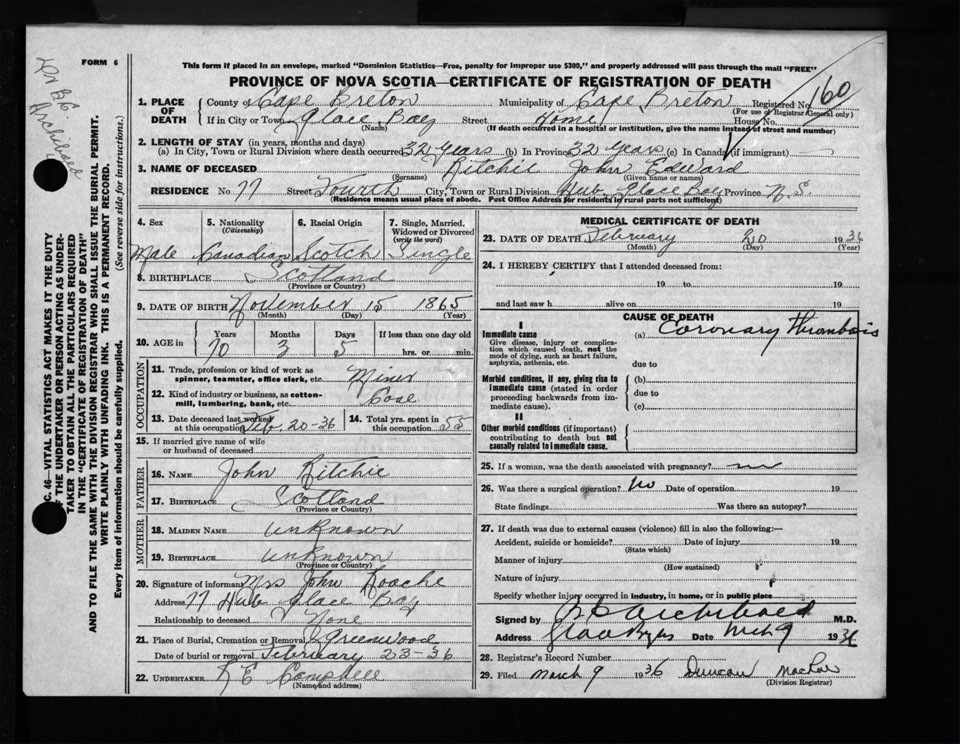 FORM 6
This form if placed in an envelope, marked "Dominion Statistics—Free, penalty for improper use $300," and properly addressed will pass through the mail "FREE"
PROVINCE OF NOVA SCOTIA—CERTIFICATE OF REGISTRATION OF DEATH
160
1. PLACE OF DEATH
County of Cape Breton Municipality of Cape Breton Registered No.
(For use of Registrar General only)
If in City or Town Glace Bay Street Home House No.
(Name) (If death occurred in a hospital or institution, give the name instead of street and number)
2. LENGTH OF STAY (in years, months and days)
(a) In City, Town or Rural Division where death occurred 32 years (b) In Province 32 years (c) In Canada (if immigrant)
3. NAME OF DECEASED Ritchie John Edward
(Surname) (Given name or names)
RESIDENCE No. 77 Street Fourth City, Town or Rural Division Hub Glace Bay Province N.S.
(Residence means usual place of abode. Post Office Address for residents in rural parts not sufficient)
4. Sex Male
5. Nationality (Citizenship) Canadian
6. Racial Origin Scotch
7. Single, Married, Widowed or Divorced (write the word) Single
8. BIRTHPLACE Scotland
(Province or Country)
9. DATE OF BIRTH November 15 1865
(Month) (Day) (Year)
10. AGE in Years 70 Months 3 Days 5 If less than one day old hrs. or min.
OCCUPATION
11. Trade, profession or kind of work as spinner, teamster, office clerk, etc. Miner
12. Kind of industry or business, as cotton-mill, lumbering, bank, etc. Coal
13. Date deceased last worked at this occupation Feb. 20-36
14. Total yrs. spent in this occupation 55
15. If married give name of wife or husband of deceased
FATHER
16. NAME John Ritchie
17. BIRTHPLACE Scotland
(Province or Country)
MOTHER
18. MAIDEN NAME unknown
19. BIRTHPLACE unknown
(Province or Country)
20. Signature of informant Mrs John Roache
Address 77 Hub Glace Bay
Relationship to deceased None
21. Place of Burial, Cremation or Removal Greenwood
Date of burial or removal February 23-36
22. UNDERTAKER Campbell
(Name and address)
MEDICAL CERTIFICATE OF DEATH
23. DATE OF DEATH February 20 1936
(Month) (Day) (Year)
24. I HEREBY CERTIFY that I attended deceased from:
19 to 19
and last saw h alive on 19
CAUSE OF DEATH
I
Immediate cause (a) Coronary Thrombosis
Give disease, injury or complication which caused death, not the mode of dying, such as heart failure, asphyxia, asthenia, etc.
due to
Morbid conditions, if any, giving rise to immediate cause (stated in order proceeding backwards from immediate cause).
(b)
due to
(c)
II
Other morbid conditions (if important) contributing to death but not causally related to immediate cause.
25. If a woman, was the death associated with pregnancy?
26. Was there a surgical operation? No Date of operation 19
State findings Was there an autopsy?
27. If death was due to external causes (violence) fill in also the following:—
Accident, suicide or homicide? Date of injury 19
(State which)
Manner of injury
(How sustained)
Nature of injury
Specify whether injury occurred in industry, in home, or in public place
Signed by Archibald M.D.
Address Glace Bay Date Mch 9 1936
28. Registrar's Record Number
29. Filed March 9 1936 Duncan
(Division Registrar)
C. 46—VITAL STATISTICS ACT MAKES IT THE DUTY
OF THE UNDERTAKER OR PERSON ACTING AS UNDER-
TAKER TO OBTAIN ALL THE PARTICULARS REQUIRED
IN THE "CERTIFICATE OF REGISTRATION OF DEATH"
AND TO FILE THE SAME WITH THE DIVISION REGISTRAR WHO SHALL ISSUE THE BURIAL PERMIT.
WRITE PLAINLY WITH UNFADING INK. THIS IS A PERMANENT RECORD.
Every item of information should be carefully supplied. (See reverse side for instructions.)
Archibald